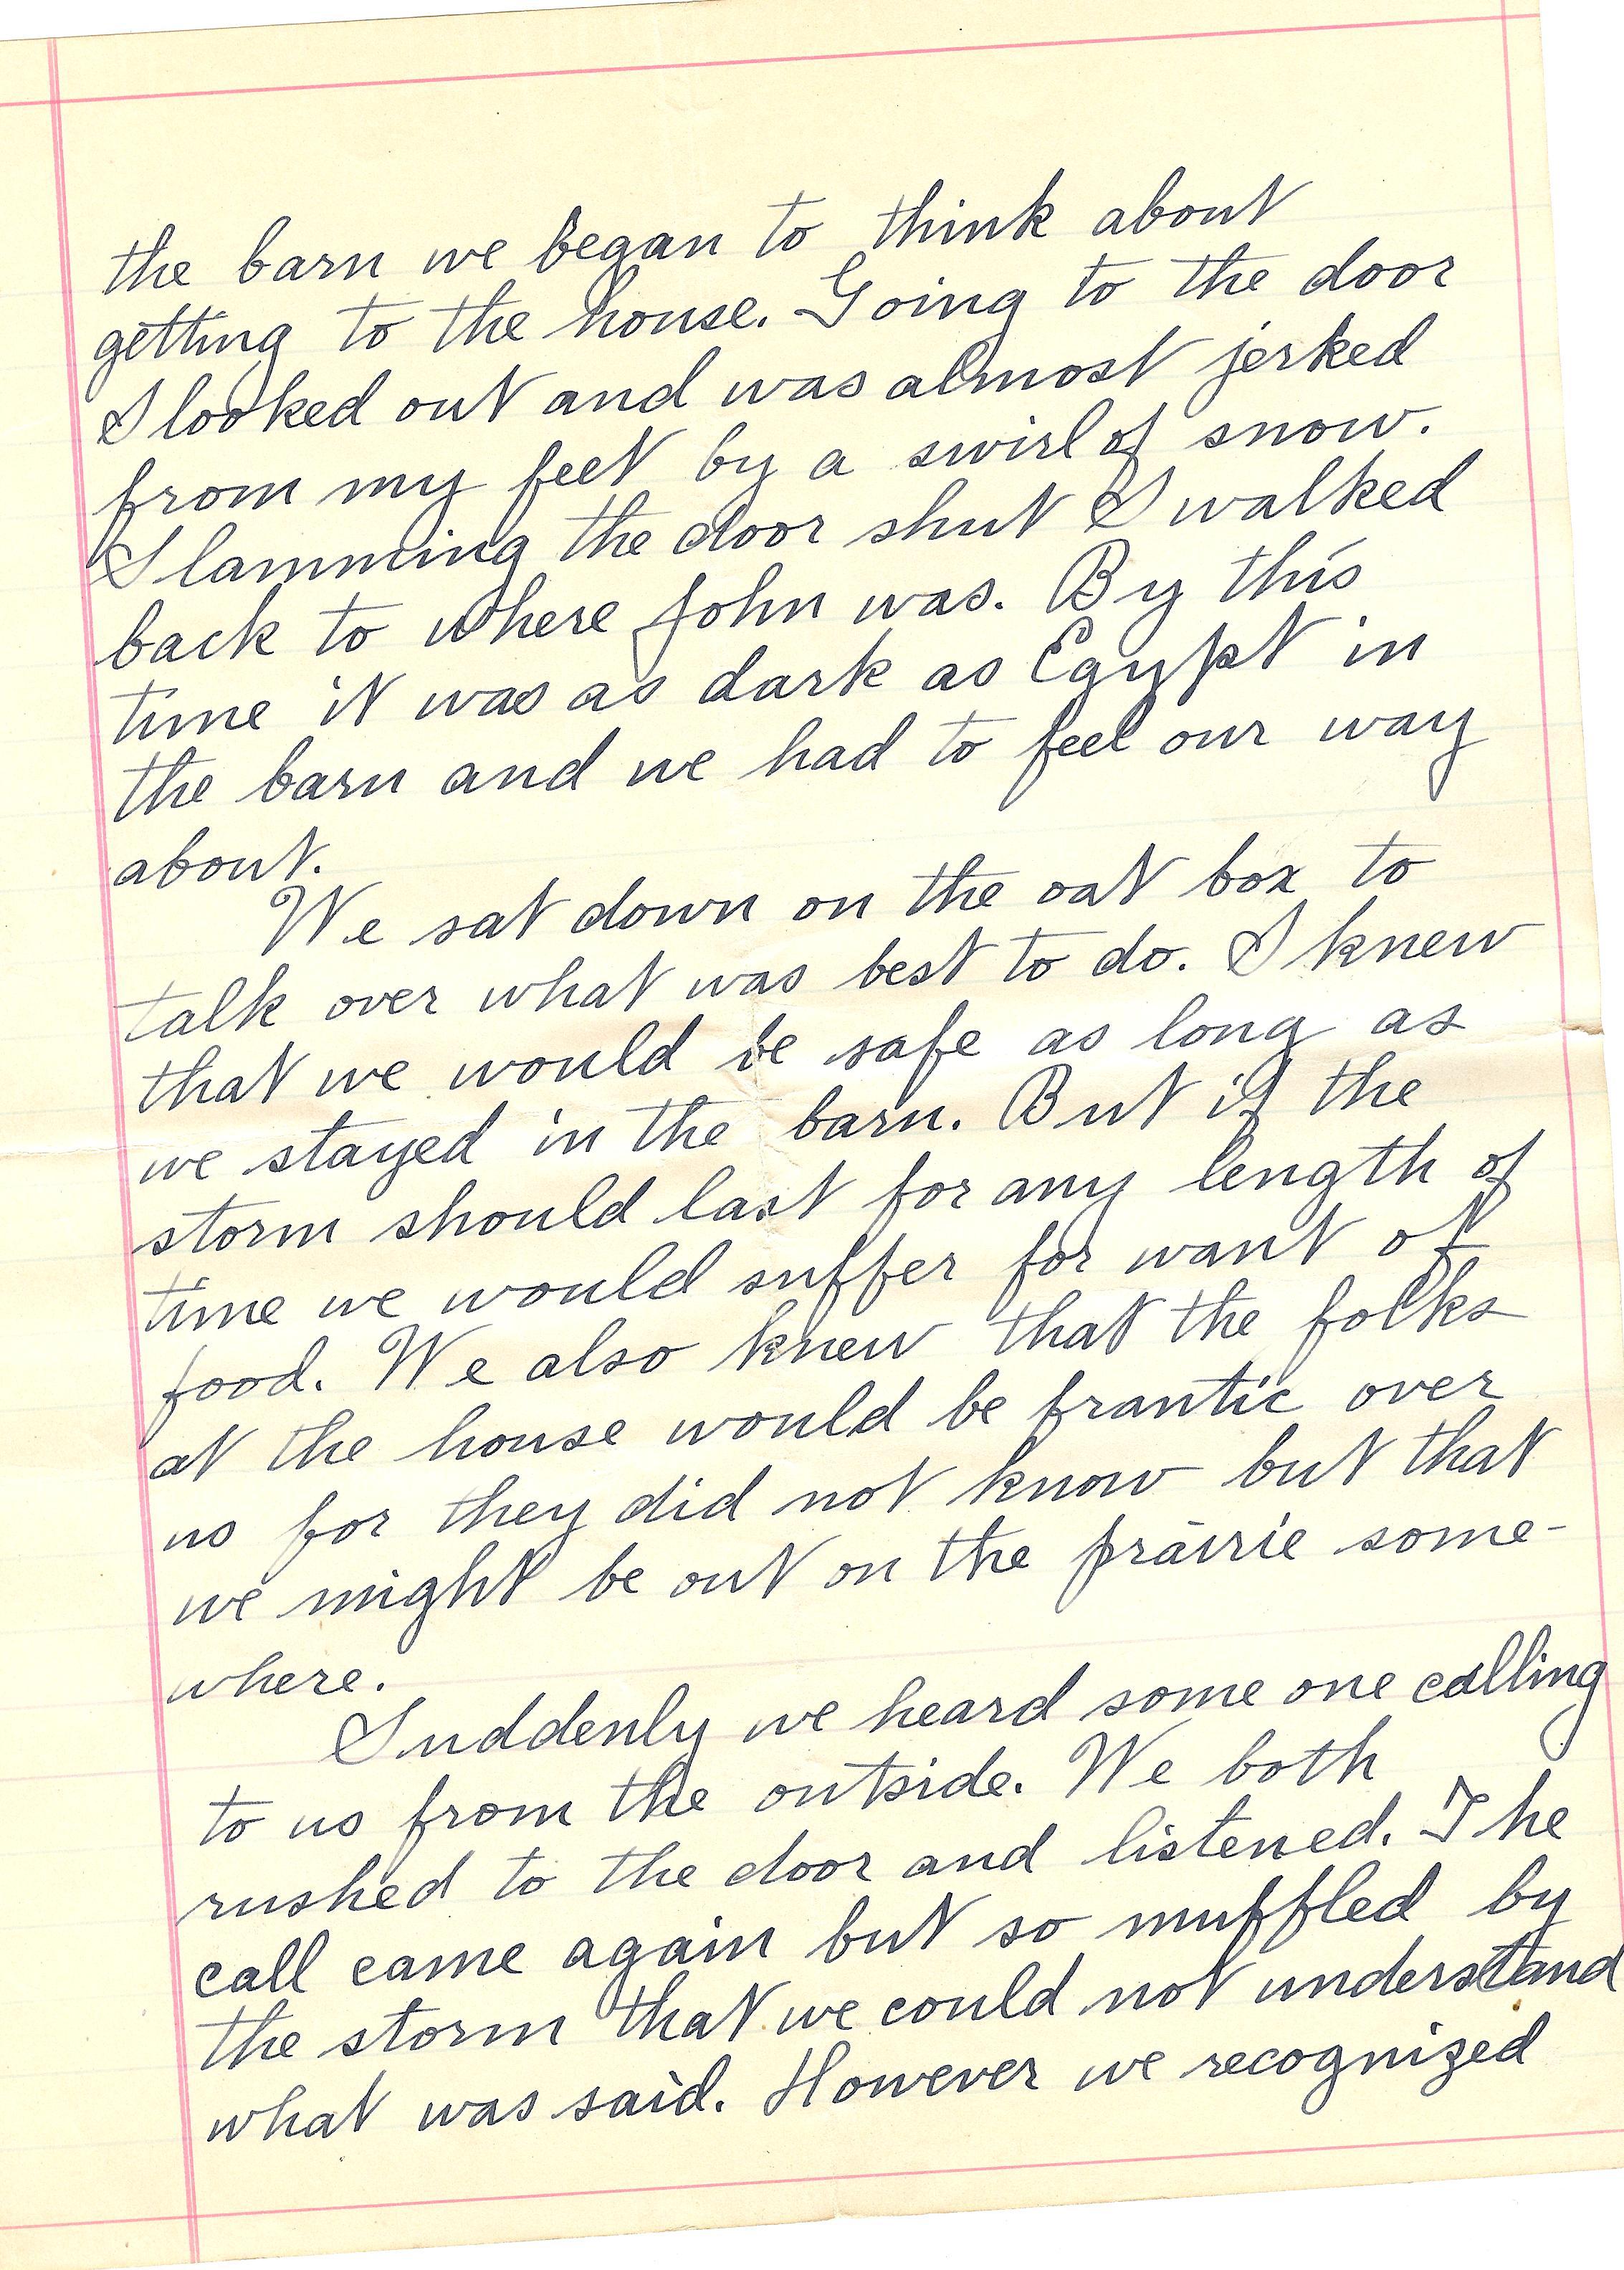 the barn we began to think about
getting to the house. Going to the door
I looked out and was almost jerked
from my feet by a swirl of snow.
Slamming the door shut I walked
back to where John was. By this
time it was as dark as Egypt in
the barn and we had to feel our way
about.
We sat down on the oat box to
talk over what was best to do. I knew
that we would be safe as long as
we stayed in the barn. But if the
storm should last for any length of
time we would suffer for want of
food. We also knew that the folks
at the house would be frantic over
us for they did not know but that
we might be out on the prairie some-
where.
Suddenly we heard some one calling
to us from the outside. We both
rushed to the door and listened. The
call came again but so muffled by
the storm that we could not understand
what was said. However we recognized